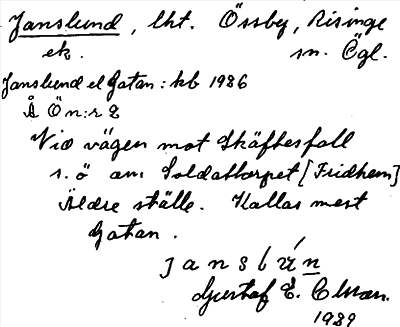 Janslund, lht. Össby, Risinge
ek. sn. Ögl.
Janslund el Gatan: kb 1986
Å Ö n:r 2
Vid vägen mot Skäftesfall
s.ö om Soldattorpet [Fridhem]
Äldre ställe. Kallas mest
Gatan.
Gustaf E. Olsson.
1989